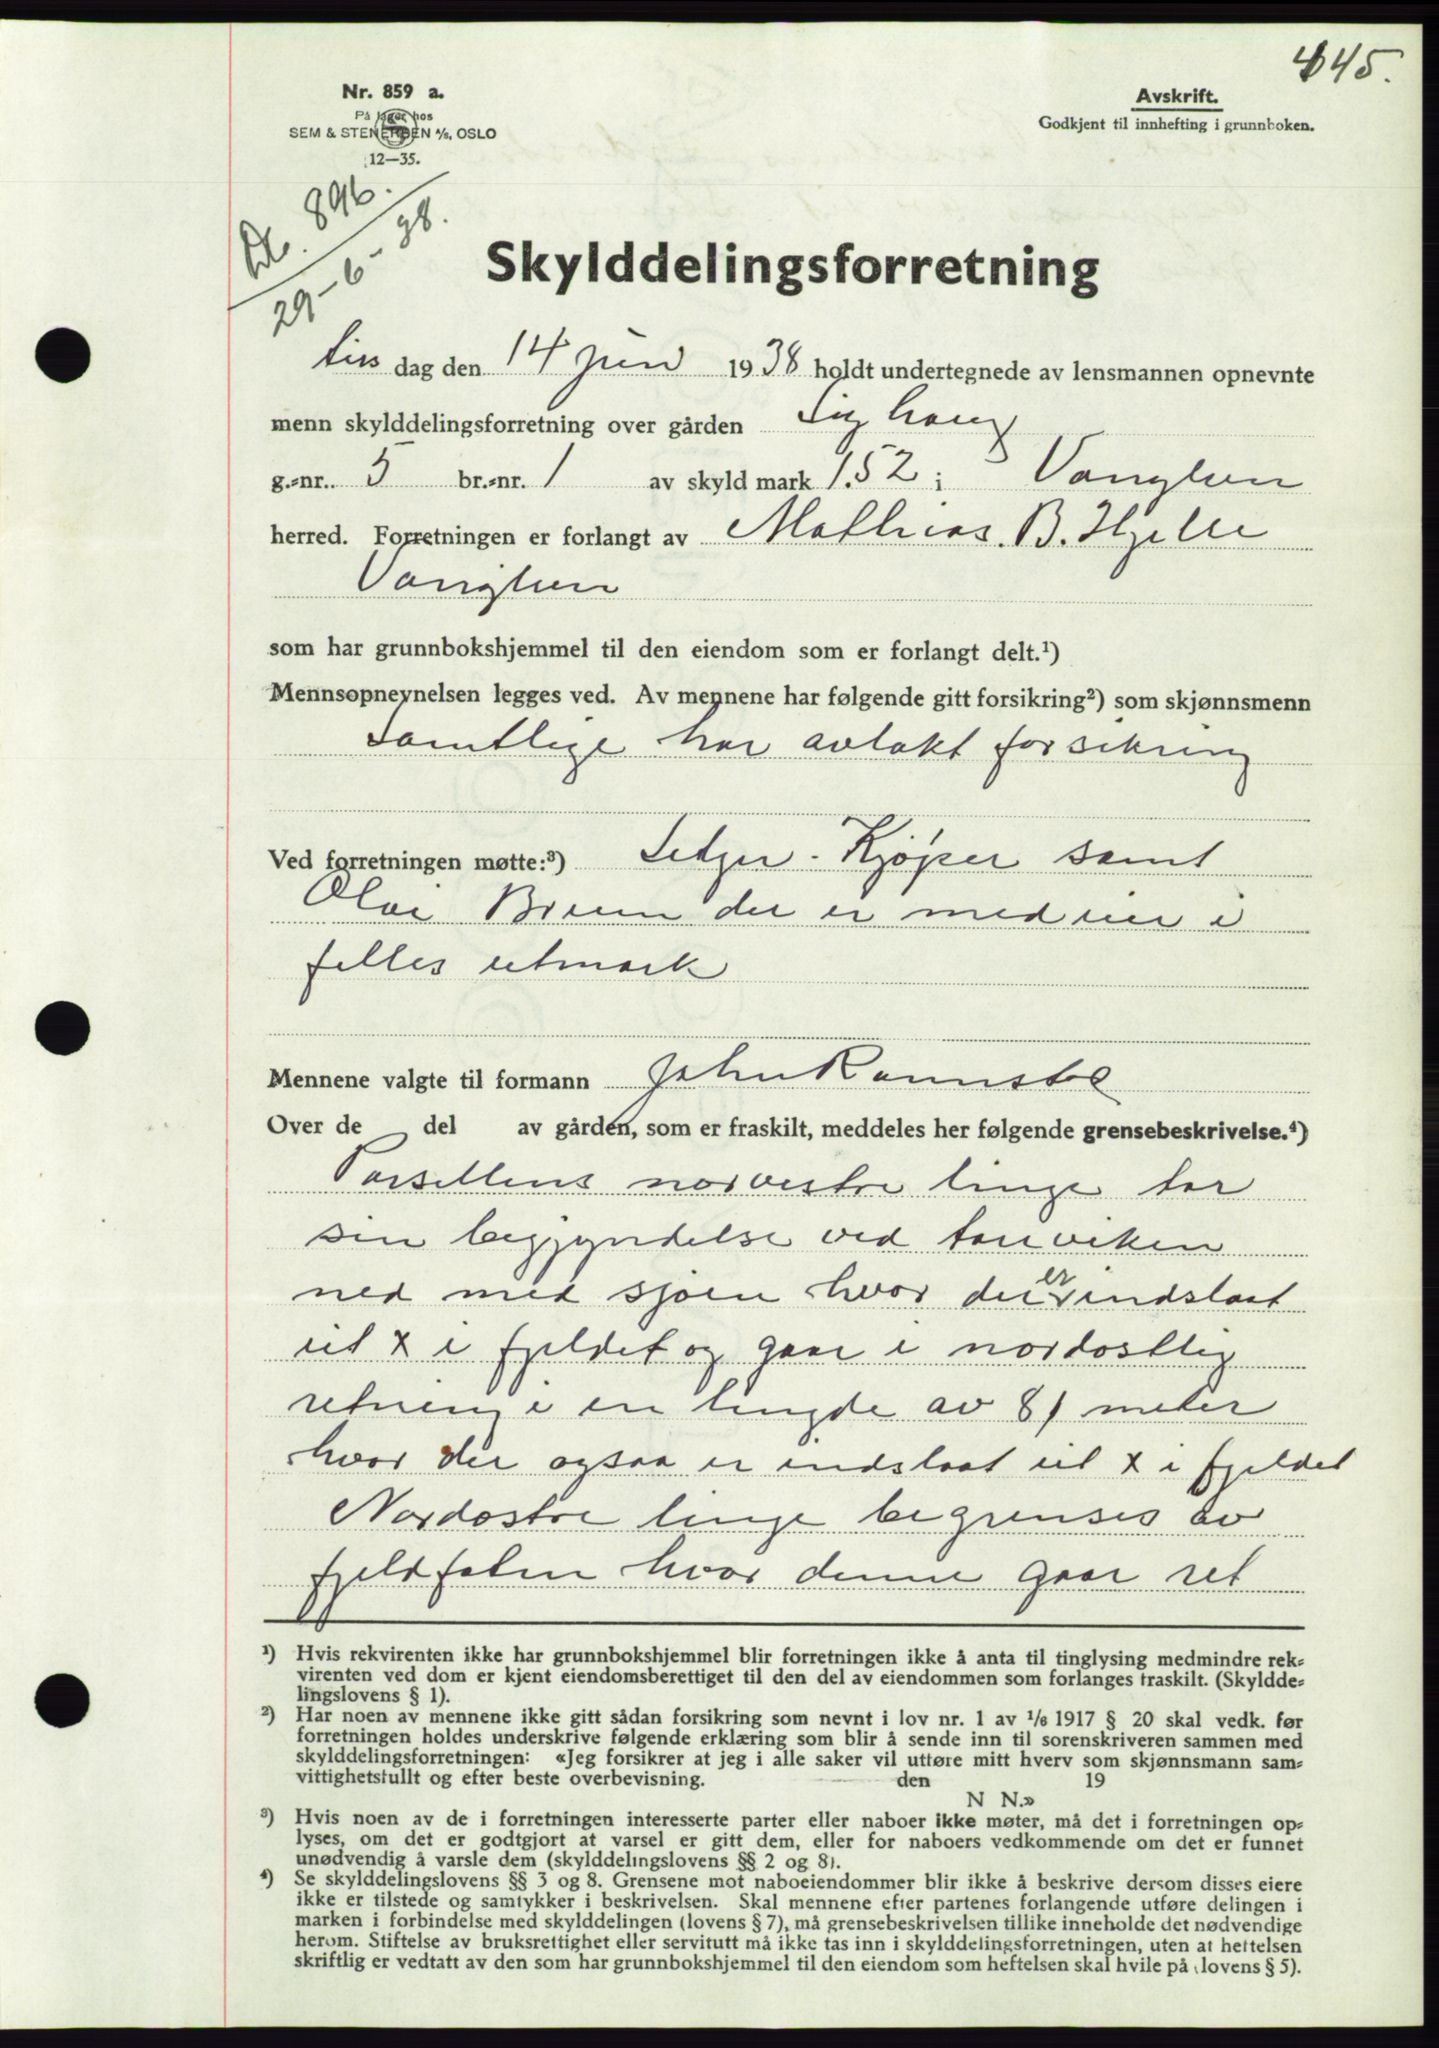 445.
Nr. 859 a.
På lager hos
SEM & STENERSEN A/S, OSLO
12—35.
Avskrift.
Godkjent til innhefting i grunnboken.
896.
29-6-38.
Skylddelingsforretning
tirs dag den 14 juni 1938 holdt undertegnede av lensmannen opnevnte
menn skylddelingsforretning over gården
g.-nr. 5 br.-nr. 1 av skyld mark 1.52 i Vanylven
herred. Forretningen er forlangt av Mathias. B. Hjelle
Vanylven
som har grunnbokshjemmel til den eiendom som er forlangt delt.¹)
Mennsopneynelsen legges ved. Av mennene har følgende gitt forsikring²) som skjønnsmenn
Samtlige har avlakt forsikring
Ved forretningen møtte:³) Selger - Kjøper samt
Olai Bruun der er med eier i
felles utmark
Mennene valgte til formann John Rannstøl
Over de del av gården, som er fraskilt, meddeles her følgende grensebeskrivelse.⁴)
Parsellens norvestre linje tar
sin begjyndelse ved
ned med sjøen hvor der er indslaat
eit x i fjeldet og gaar i nordostlig
retning i en lengde av 81 meter
hvor der ogsaa er indslaat eit x i fjeldet
Nordostre linje begrenses av
fjeldfoten hvor denne gaar ret
¹) Hvis rekvirenten ikke har grunnbokshjemmel blir forretningen ikke å anta til tinglysing medmindre rek-
virenten ved dom er kjent eiendomsberettiget til den del av eiendommen som forlanges fraskilt. (Skyldde-
lingslovens § 1).
²) Har noen av mennene ikke gitt sådan forsikring som nevnt i lov nr. 1 av 1/6 1917 § 20 skal vedk. før
forretningen holdes underskrive følgende erklæring som blir å sende inn til sorenskriveren sammen med
skylddelingsforretningen: «Jeg forsikrer at jeg i alle saker vil utføre mitt hverv som skjønnsmann sam-
vittighetsfullt og efter beste overbevisning. den 19
N N.»
³) Hvis noen av de i forretningen interesserte parter eller naboer ikke møter, må det i forretningen op-
lyses, om det er godtgjort at varsel er gitt dem, eller for naboers vedkommende om det er funnet
unødvendig å varsle dem (skylddelingslovens §§ 2 og 8).
⁴) Se skylddelingslovens §§ 3 og 8. Grensene mot naboeiendommer blir ikke å beskrive dersom disses eiere
ikke er tilstede og samtykker i beskrivelsen. Skal mennene efter partenes forlangende utføre delingen i
marken i forbindelse med skylddelingen (lovens § 7), må grensebeskrivelsen tillike inneholde det nødvendige
herom. Stiftelse av bruksrettighet eller servitutt må ikke tas inn i skylddelingsforretningen, uten at heftelsen
skriftlig er vedtatt av den som har grunnbokshjemmel til den eiendom som heftelsen skal hvile på (lovens § 5).